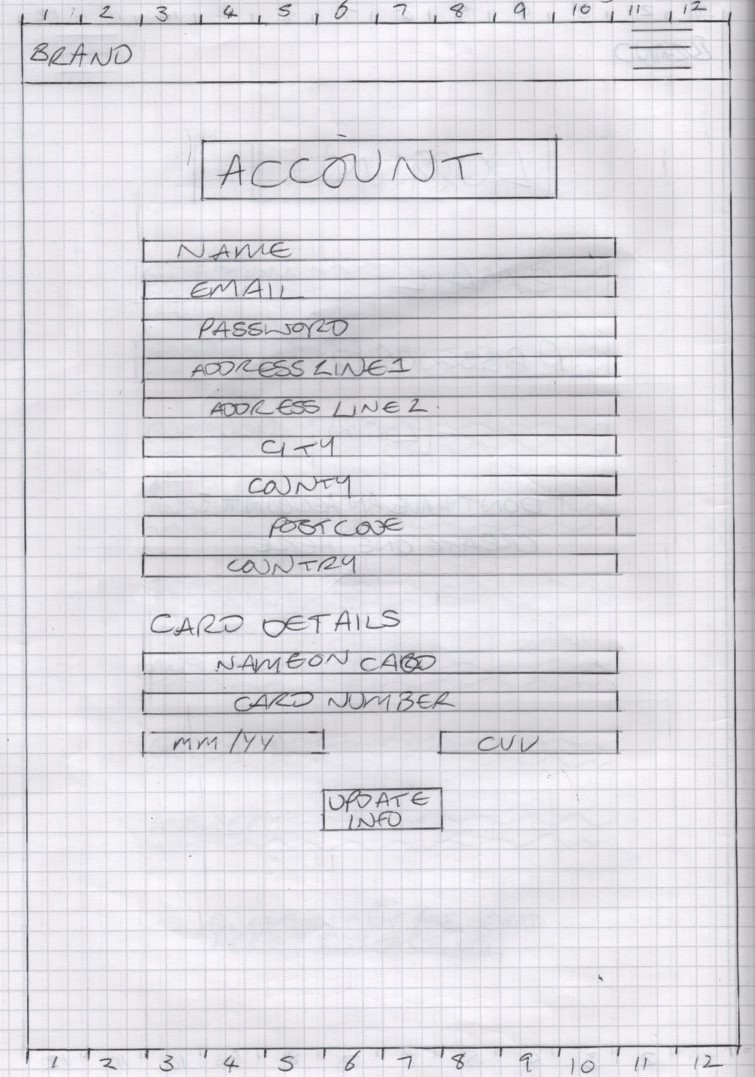 1 2 3 4 5 6 7 8 9 10 11 12
BRAND
ACCOUNT
NAME
EMAIL
PASSWORD
ADDRESS LINE 1
ADDRESS LINE 2.
CITY
COUNTY
POSTCODE
COUNTRY
CARD DETAILS
NAME ON CARD
CARD NUMBER
MM/YY CVV
UPDATE
INFO
1 2 3 4 5 6 7 8 9 10 11 12